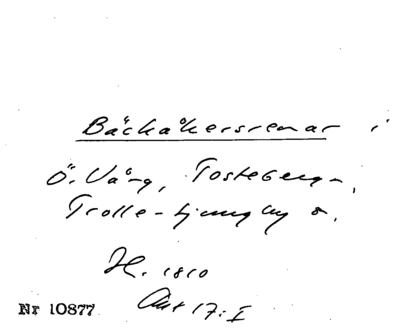 Bäckåkersrenar i
Ö. Vång, Tosteberga,
Trolle-Ljungby o.
H. 1810
Akt 17:I
Nr 10877